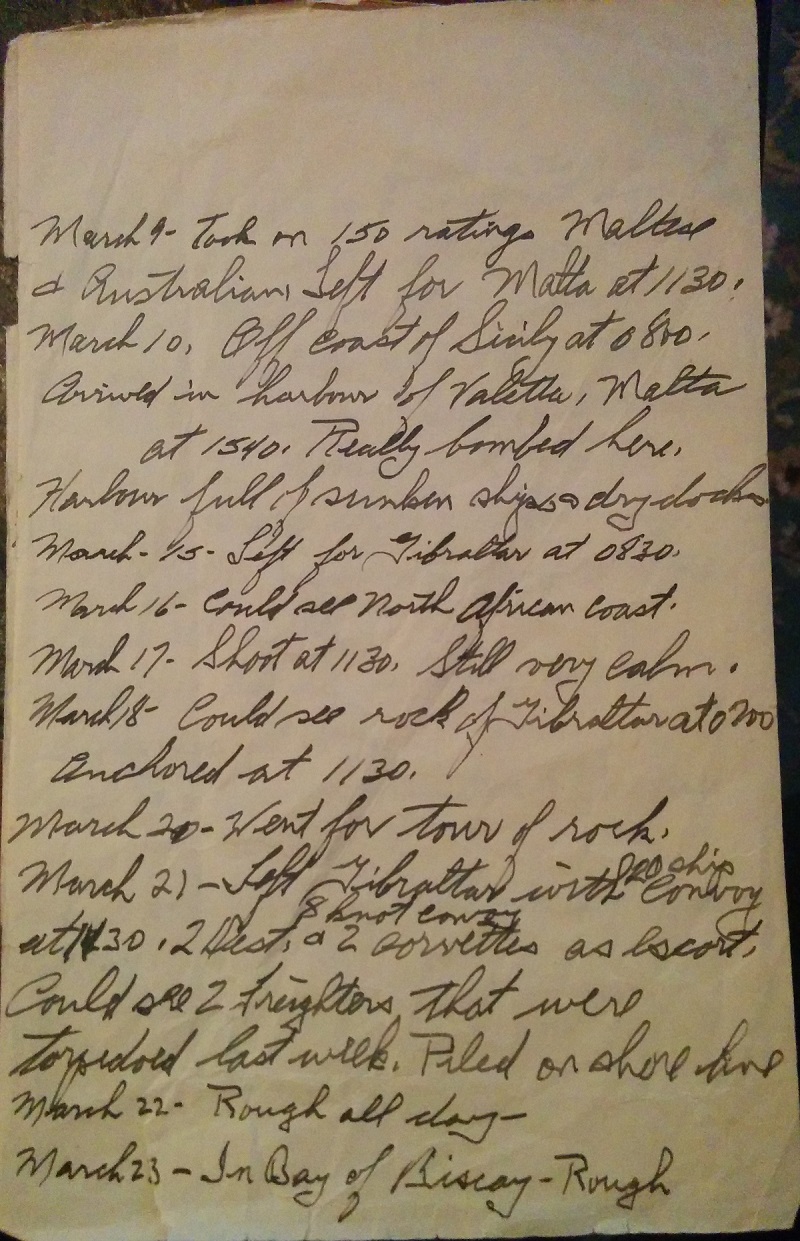 March 9- Took on 150 ratings Maltese
& Australian, Left for Malta at 1130.
March 10. Off coast of Sicily at 0800.
Arrived in harbour of Valetta, Malta
at 1540. Really bombed here.
Harbour full of sunken ships & dry docks
March- 15- Left for Gibraltar at 0830.
March 16- Could see North African coast.
March 17- Shoot at 1130. Still very calm.
March 18- Could see rock of Gibraltar at 0700
Anchored at 1130.
March 20- Went for tour of rock.
March 21- Left Gibraltar with 20 ship convoy
8 knot convoy
at 1130. 2 Dest. & 2 corvettes as escort.
Could see 2 freighters that were
torpedoed last week. Piled on shore line
March 22- Rough all day-
March 23- In Bay of Biscay- Rough